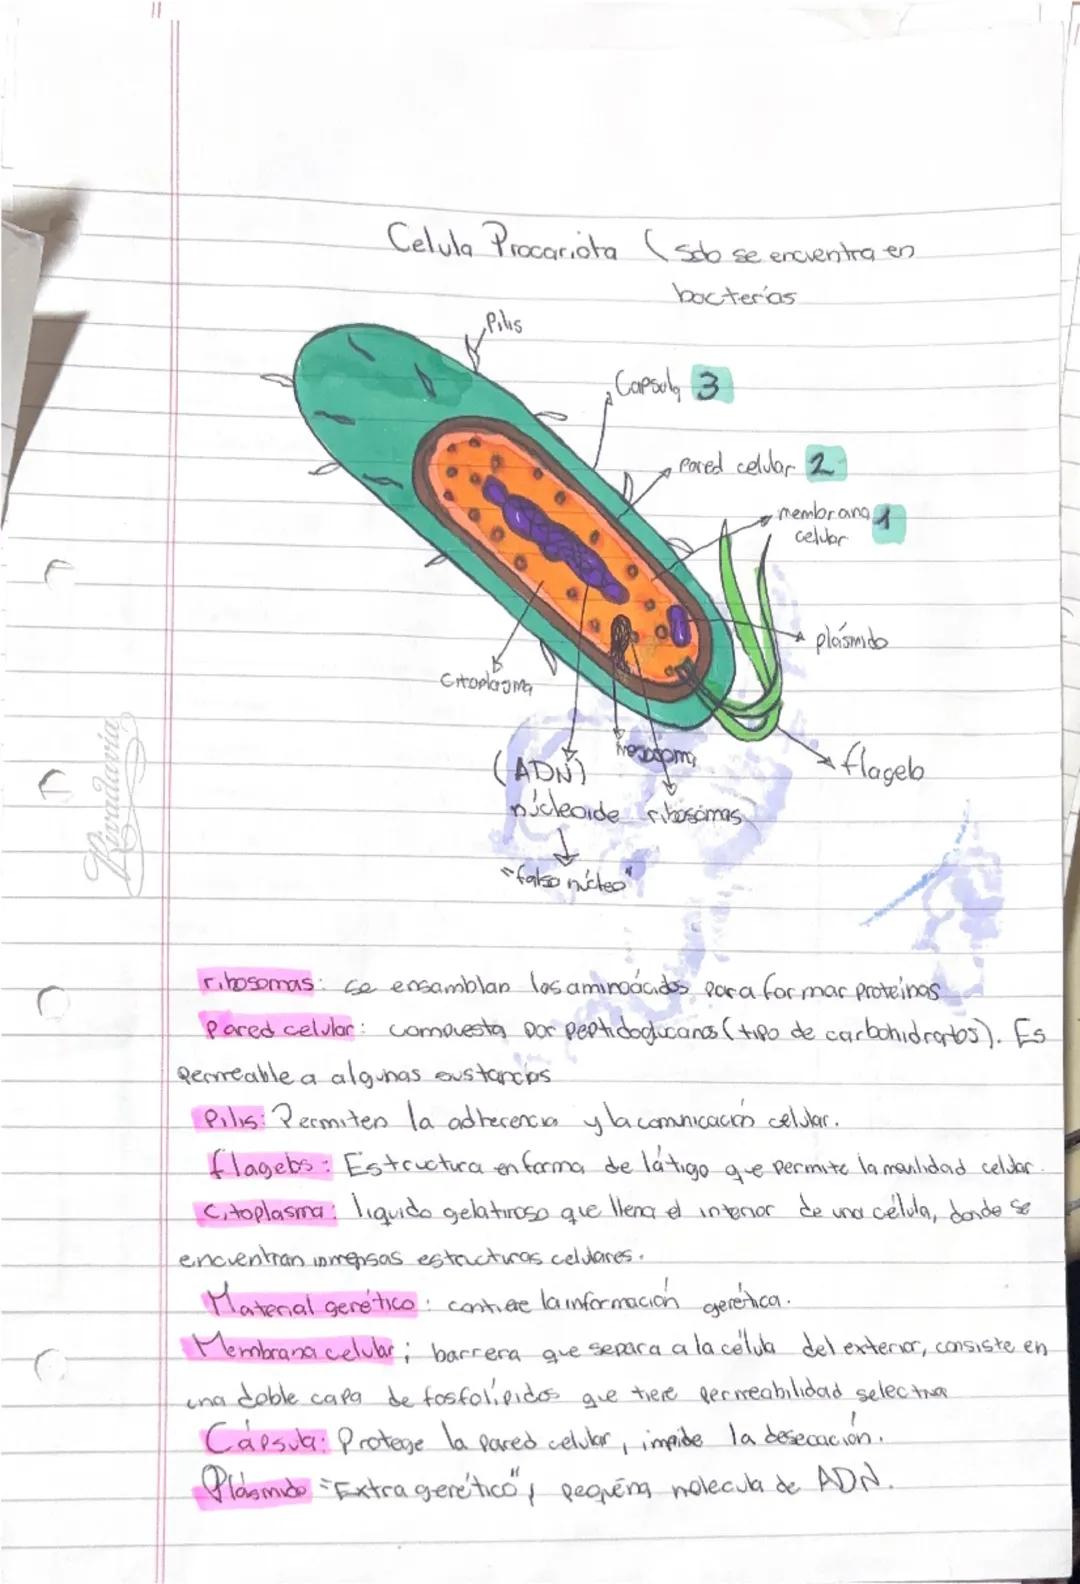 Celula Procariota (solo se encuentra en
bacterias
Pilis
Capsula 3
Pared celular 2
membrana 1
celular
plásmido
Citoplasma
mesosoma
flagelo
(ADN)
núcleoide
ribosomas
"falso núcleo"
Rivadavia
ribosomas: se ensamblan los aminoácidos para formar proteínas
Pared celular: compuesta por peptidoglucanos (tipo de carbohidratos). Es
permeable a algunas sustancias
Pilis: Permiten la adherencia y la comunicación celular.
flagelos: Estructura en forma de látigo que permite la movilidad celular.
Citoplasma: liquido gelatinoso que llena el interior de una célula, donde se
encuentran inmensas estructuras celulares.
Material genético: contiene la información genética.
Membrana celular; barrera que separa a la célula del exterior, consiste en
una doble capa de fosfolípidos que tiene permeabilidad selectiva
Cápsula: Protege la pared celular, impide la desecación.
Plásmido "Extra genético", pequeña molecula de ADN.